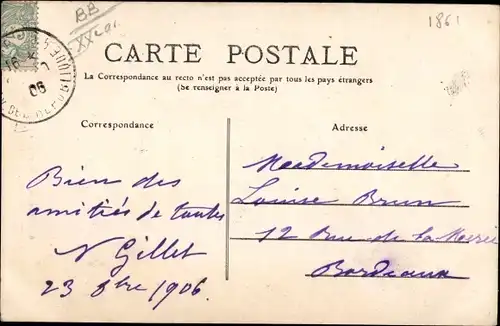 BB
XXcol
1861
CARTE POSTALE
La Correspondance au recto n'est pas acceptée par tous les pays étrangers
(Se renseigner à la Poste)
Correspondance
Adresse
Bien des
amitiés de toutes
N Gillet
23 8bre 1906.
Mademoiselle
Louise Brun
12 Rue de la
Bordeaux